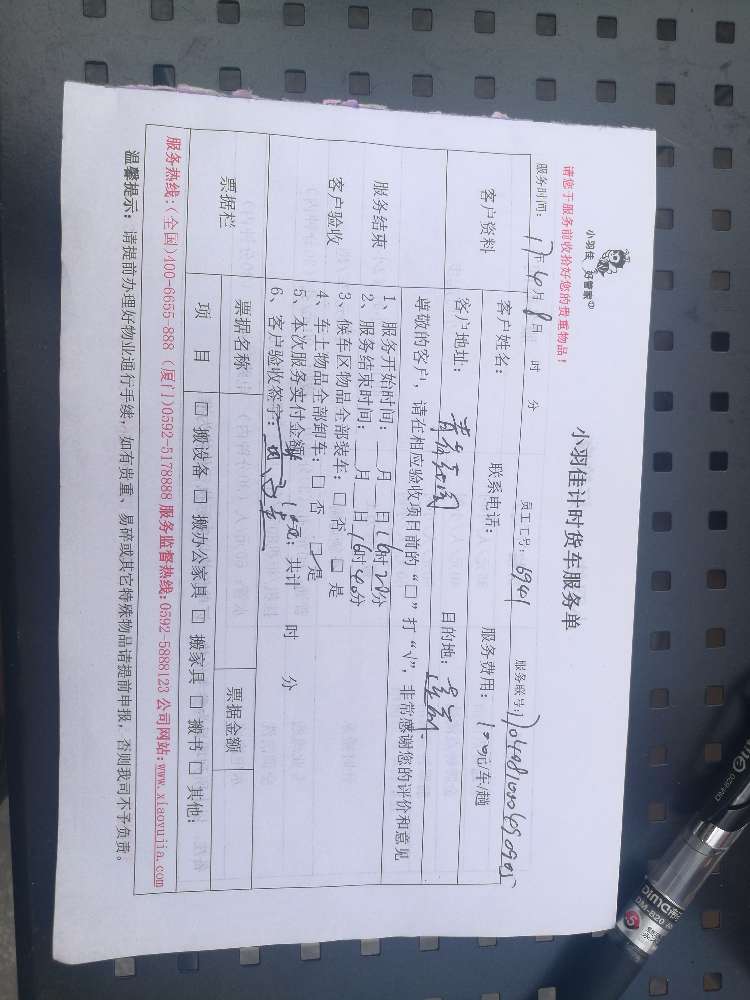 小羽佳 好管家
小羽佳计时货车服务单
请您于服务前收拾好您的贵重物品！
服务时间：17年4月8日 时 分 员工工号：6941 服务联号：
客户资料 客户姓名： 联系电话： 服务费用：100元/车/趟
客户地址： 目的地：
服务结束
客户验收
尊敬的客户，请在相应验收项目前的“□”打“√”，非常感谢您的评价和意见
1、服务开始时间：__月__日16时20分
2、服务结束时间：__月__日16时40分
3、候车区物品全部装车：□ 否 □ 是
4、车上物品全部卸车：□ 否 ☑ 是
5、本次服务实付金额：100元；共计 时 分
6、客户验收签字：
票据栏 票据名称 票据金额
项 目 □ 搬设备 □ 搬办公家具 □ 搬家具 □ 搬书 □ 其他：
服务热线：(全国)400-6655-888 (厦门)0592-5178888 服务监督热线：0592-5888123 公司网站：www.xiaoyujia.com
温馨提示：请提前办理好物业通行手续，如有贵重、易碎或其它特殊物品请提前申报，否则我司不予负责。
Dima
DM-820